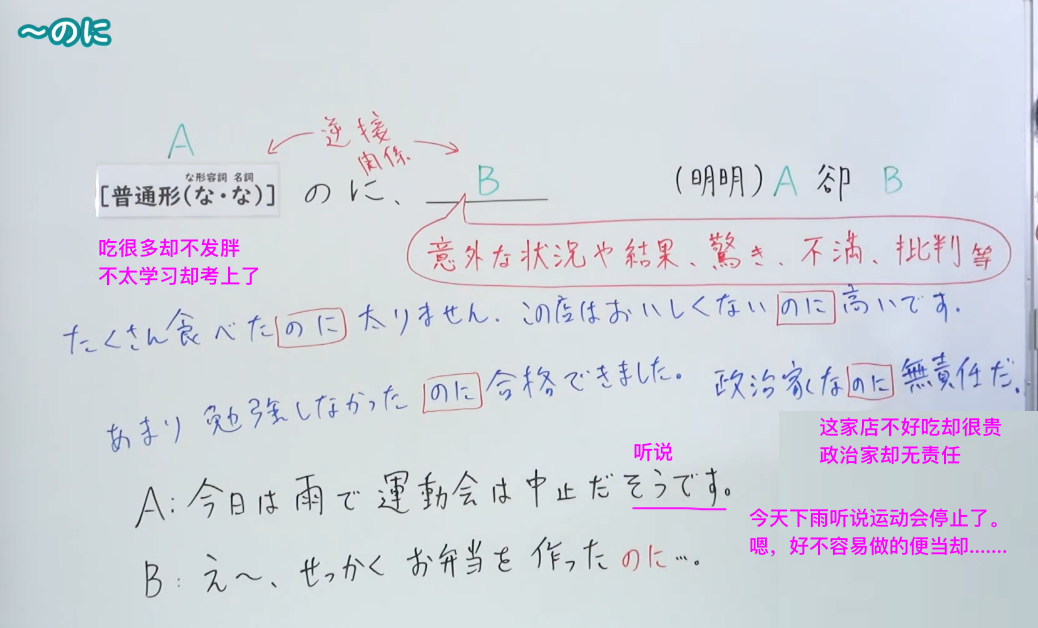 ～のに
A
逆接
関係
な形容詞 名詞
[普通形(な・な)] のに、 B
(明明) A 卻 B
意外な状況や結果、驚き、不満、批判 等
吃很多却不发胖
不太学习却考上了
たくさん食べた のに 太りません. この店はおいしくない のに 高いです.
あまり 勉強しなかった のに 合格できました。 政治家なのに 無責任だ.
这家店不好吃却很贵
政治家却无责任
听说
A: 今日は雨で 運動会は中止だそうです。
今天下雨听说运动会停止了。
嗯，好不容易做的便当却.......
B: え～、せっかく お弁当を 作った のに….